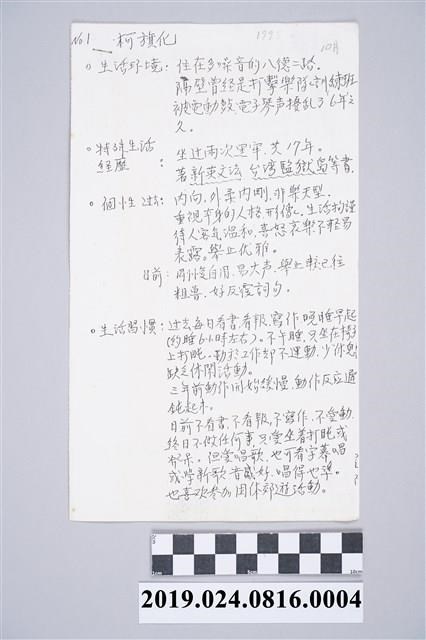 No.1 柯旗化 1995 10月
。生活环境: 住在多噪音的八德二路.
隔壁曾經是打擊樂隊訓練班
被電動鼓.電子琴声擾乱了6年之
久。
。特殊生活 坐过兩次黑牢,共17年。
經歷: 著新英文法 台湾監獄島等書.
。個性 过去: 内向,外柔内剛,非樂天型.
重視本身的人格形像.生活拘謹
待人客氣温和.喜怒哀樂不輕易
表露。舉止优雅。
目前: 易大声.舉止較已往
粗魯.好反覆詞句.
。生活習慣: 过去每日看書.看报.寫作.晚睡早起
(約睡6小時左右)。不午睡.只坐在椅子
上打盹。勤於工作却不運動.少休息
缺乏休閑活動。
三年前動作開始緩慢,動作反应遲
鈍起来.
目前不看書.不看報.不寫作.不愛動.
終日不做任何事.只愛坐着打盹或
發呆。但愛唱歌.也可看字幕唱
或学新歌.音感好.唱得也準。
也喜欢参加团体郊遊活動。
1cm 5cm 10cm
2019.024.0816.0004